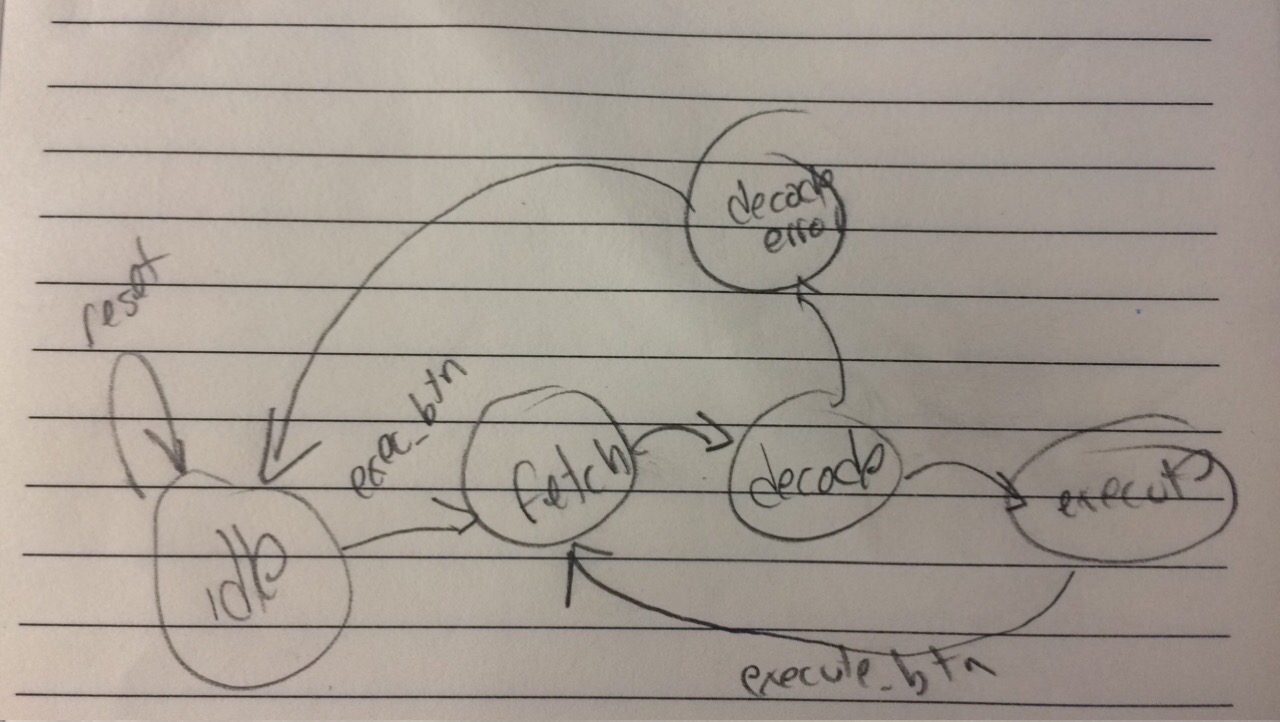 decode
error
reset
exac_btn
fetch
decode
execute
idle
execute_btn